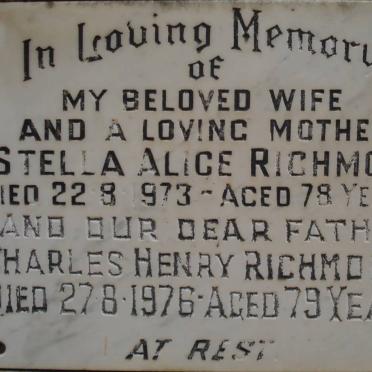 In Loving Memory
OF
MY BELOVED WIFE
AND A LOVING MOTHE
STELLA ALICE RICHMO
DIED 22 8 1973 - AGED 78 YE
AND OUR DEAR FATH
CHARLES HENRY RICHMO
DIED 27 8 · 1976 - AGED 79 YEA
AT REST